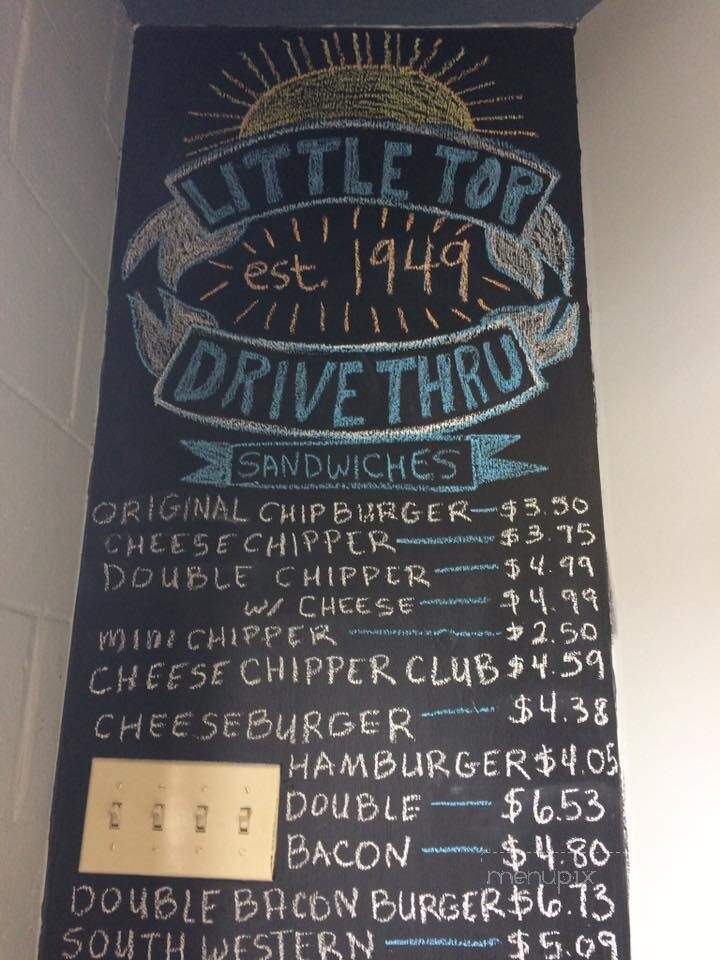 LITTLE TOP
est. 1949
DRIVE THRU
SANDWICHES
ORIGINAL CHIPBURGER $3.50
CHEESE CHIPPER $3.75
DOUBLE CHIPPER $4.99
W/ CHEESE $4.99
MINI CHIPPER $2.50
CHEESE CHIPPER CLUB $4.59
CHEESEBURGER $4.38
HAMBURGER $4.05
DOUBLE $6.53
BACON $4.80
menupix
DOUBLE BACON BURGER $6.73
SOUTH WESTERN $5.09